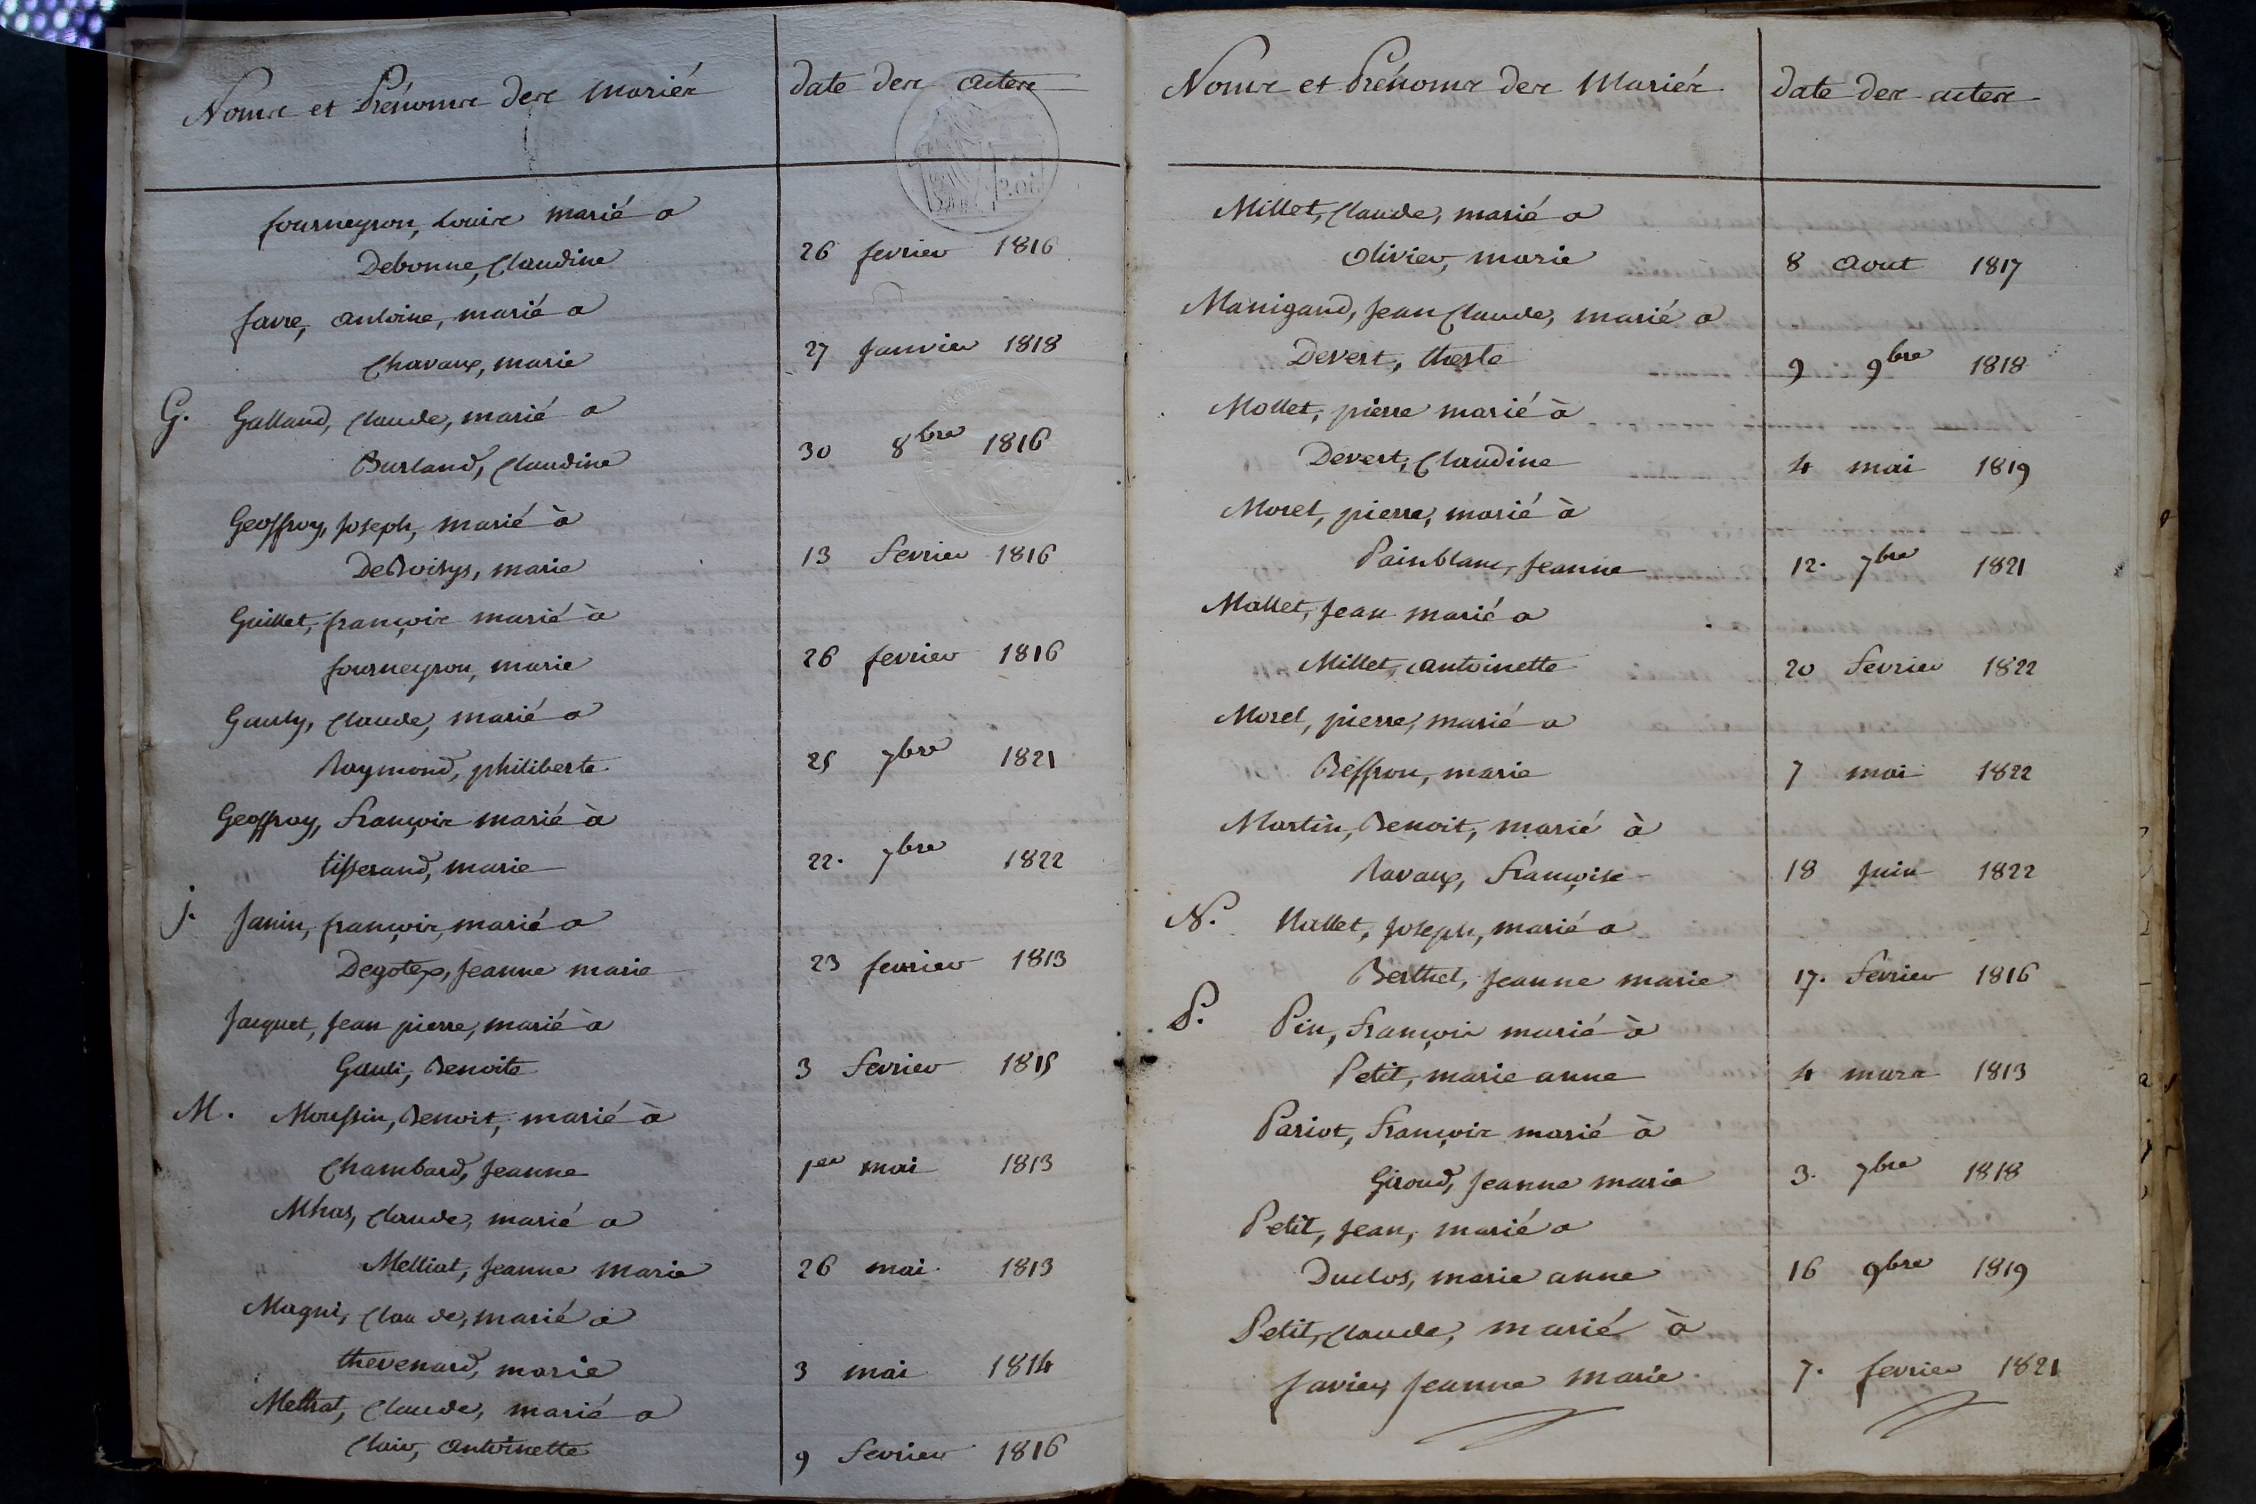 Noms et Prénoms des mariés date des actes
fourneyron, louis marié a
Debonne, Claudine 26 fevrier 1816
favre, antoine, marié a
Chavaux, marie 27 Janvier 1818
G. Galland, Claude, marié a
Burland, Claudine 30 8bre 1816
Geoffroy, Joseph, marié à
DeBoisys, marie 13 fevrier 1816
Guillet, françois marié à
fourneyron, marie 26 fevrier 1816
Gauly, Claude, marié a
Raymond, philiberte 25 7bre 1821
Geoffroy, françois marié à
tisserand, marie 22. 7bre 1822
j. Janin, françois, marié a
Degotex, Jeanne marie 23 fevrier 1813
Jacquet, Jean pierre, marié à
Gauli, Benoite 3 fevrier 1815
M. Moussin, Benoit, marié à
Chambard, Jeanne 1er mai 1813
Mhas, Claude, marié a
Melliat, Jeanne marie 26 mai 1813
Magni, Claude, marié à
thevenard, marie 3 mai 1814
Claude, marié a
Clair, antoinette 9 fevrier 1816
Noms et Prénoms des Mariés date des actes
Millet, Claude, marié a
Olivier, marie 8 Aout 1817
Manigand, Jean Claude, marié a
Devert, 9 9bre 1818
Mollet, pierre marié à
Devert, Claudine 4 mai 1819
Morel, pierre, marié à
Painblanc, Jeanne 12. 7bre 1821
Mallet, Jean marié a
Millet, antoinette 20 fevrier 1822
Morel, pierre, marié a
Beffron, marie 7 mai 1822
Martin, Benoit, marié à
Ravaux, Françoise 18 Juin 1822
N. Nallet, Joseph, marié a
Berthet, Jeanne marie 17. fevrier 1816
P. Pin, françois marié à
Petit, marie anne 4 mars 1813
Pariot, françois marié à
Giroud, Jeanne marie 3. 7bre 1818
Petit, Jean, marié a
Duclos, marie anne 16 9bre 1819
Petit, Claude, marié à
Javier, Jeanne marie. 7. fevrier 1821